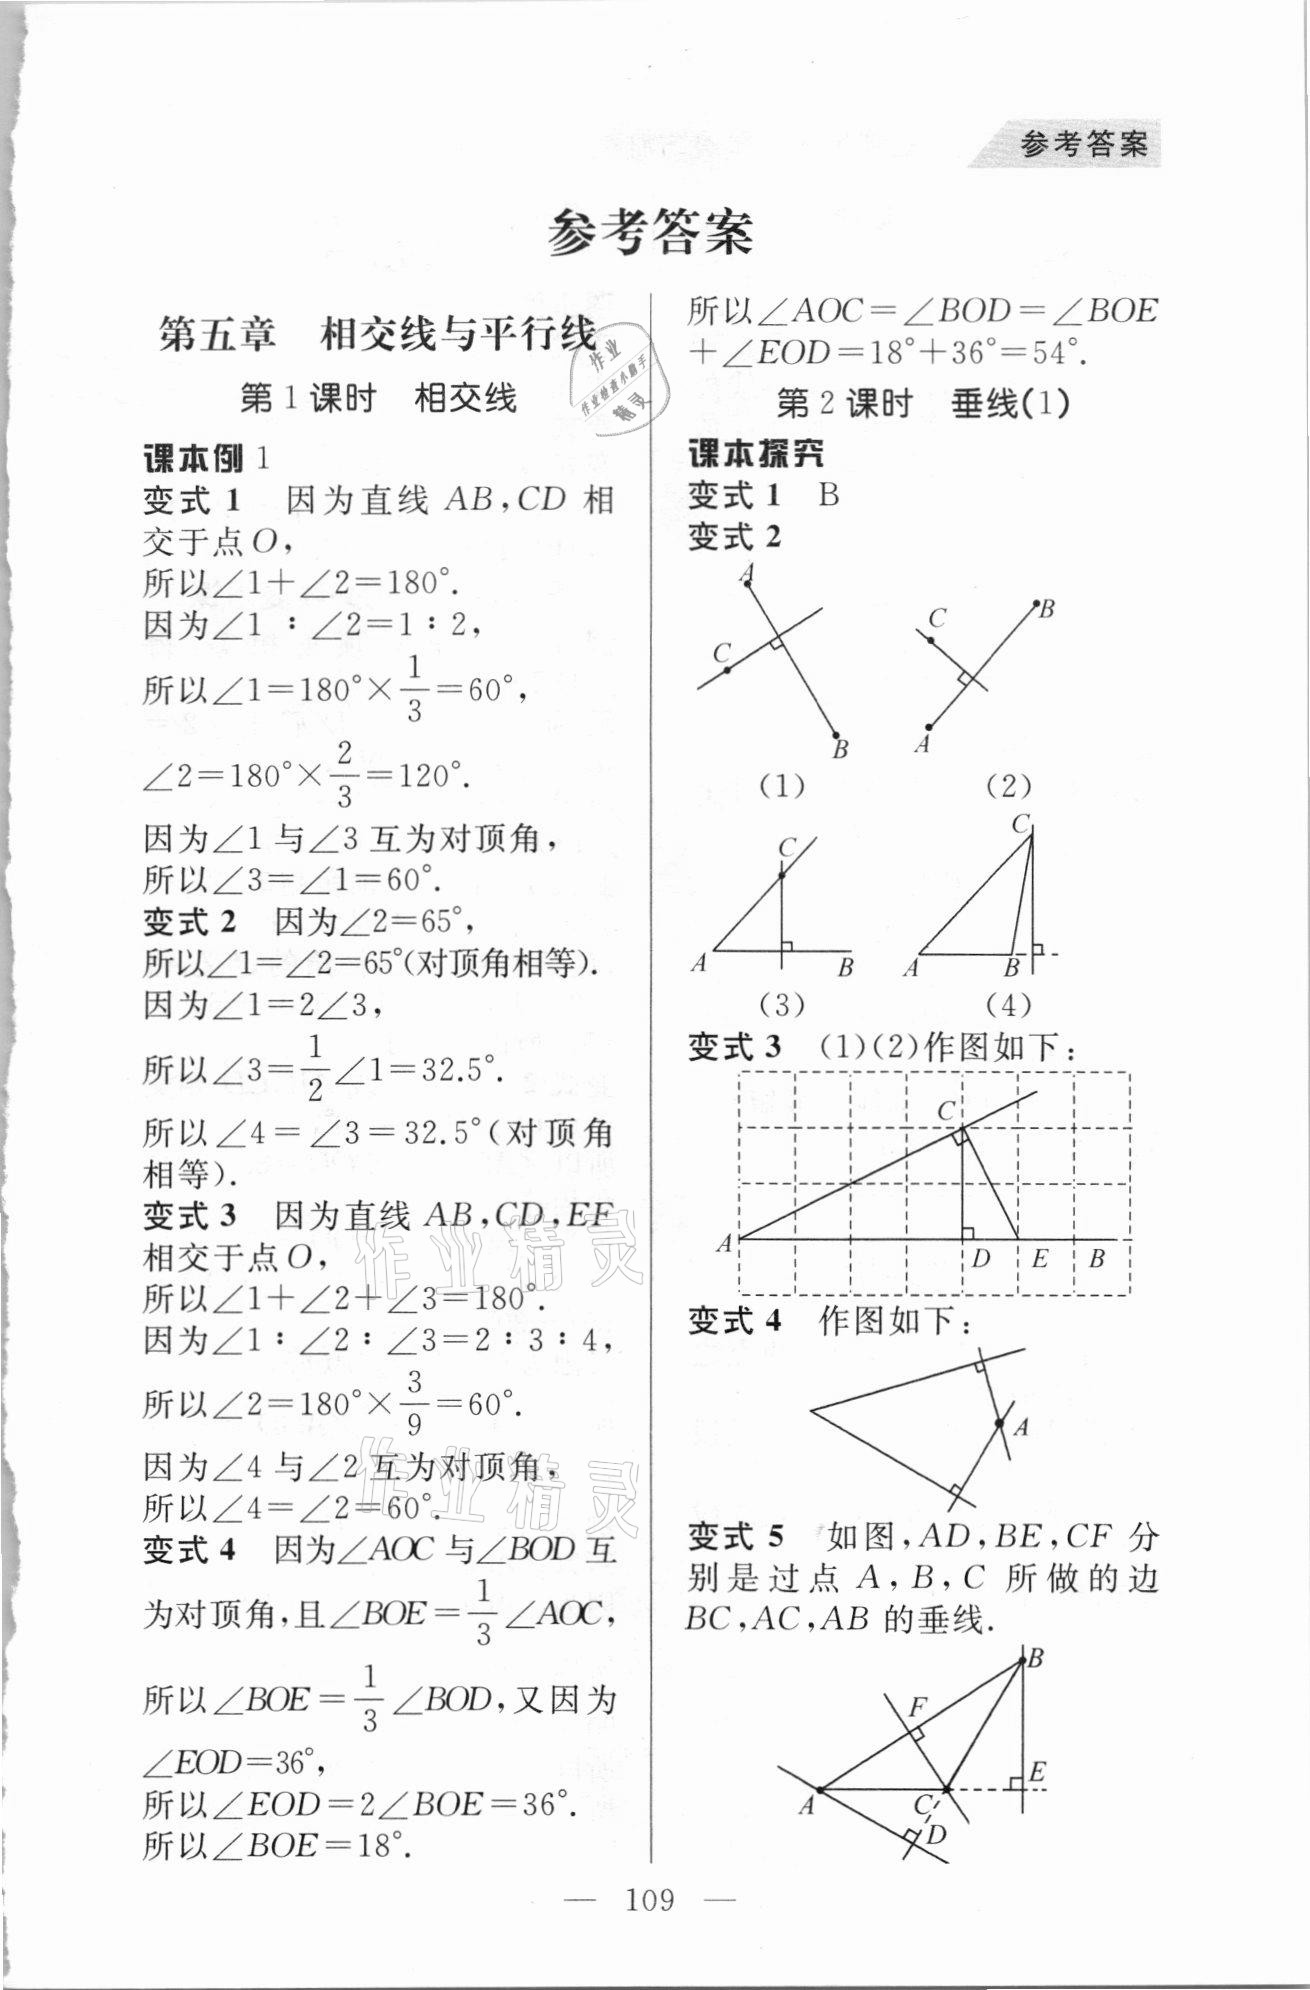 参考答案
参考答案
第五章 相交线与平行线
第1课时 相交线
课本例1
变式1 因为直线 AB,CD 相
交于点O,
所以∠1+∠2=180°.
因为∠1:∠2=1:2,
所以∠1=180°×1/3=60°,
∠2=180°×2/3=120°.
因为∠1与∠3互为对顶角,
所以∠3=∠1=60°.
变式2 因为∠2=65°,
所以∠1=∠2=65°(对顶角相等).
因为∠1=2∠3,
所以∠3=1/2∠1=32.5°.
所以∠4=∠3=32.5°(对顶角
相等).
变式3 因为直线 AB,CD,EF
相交于点O,
所以∠1+∠2+∠3=180°.
因为∠1:∠2:∠3=2:3:4,
所以∠2=180°×3/9=60°.
因为∠4与∠2互为对顶角,
所以∠4=∠2=60°.
变式4 因为∠AOC与∠BOD互
为对顶角,且∠BOE=1/3∠AOC,
所以∠BOE=1/3∠BOD,又因为
∠EOD=36°,
所以∠EOD=2∠BOE=36°.
所以∠BOE=18°.
所以∠AOC=∠BOD=∠BOE
+∠EOD=18°+36°=54°.
第2课时 垂线(1)
课本探究
变式1 B
变式2
A
C
B
(1)
C
B
A
(2)
C
A
B
(3)
C
A
B
(4)
变式3 (1)(2)作图如下:
C
A
D
E
B
变式4 作图如下:
A
变式5 如图,AD,BE,CF 分
别是过点 A,B,C 所做的边
BC,AC,AB 的垂线.
B
F
E
A
C
D
— 109 —
作业
作业检查小助手
精灵
作业精灵
作业精灵